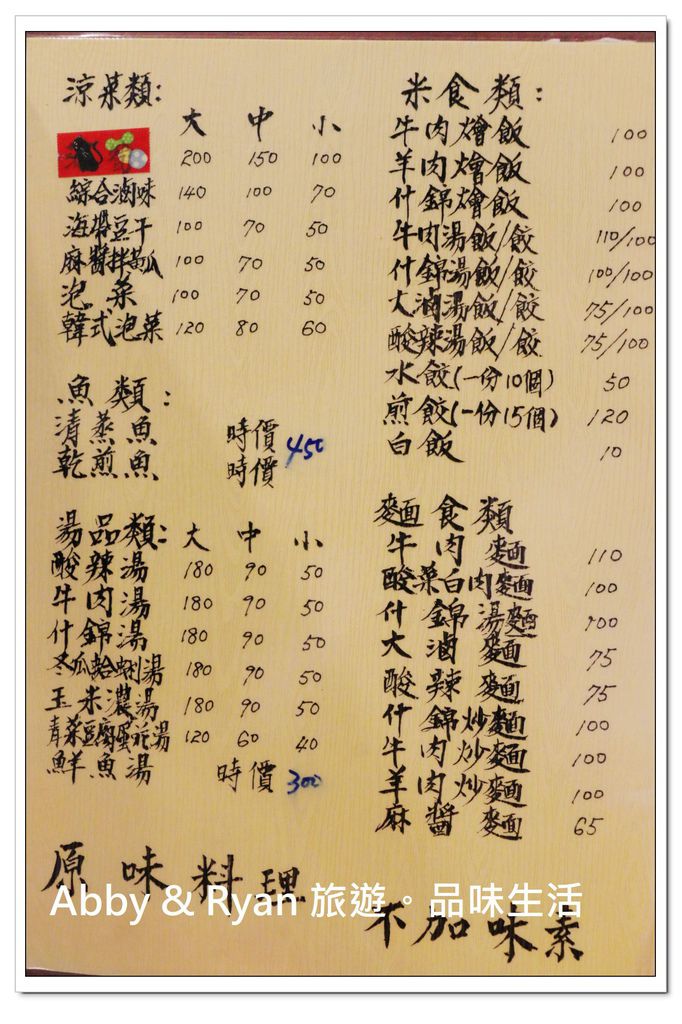 涼菜類:
大 中 小
200 150 100
綜合滷味 140 100 70
海帶豆干 100 70 50
麻醬拌黃瓜 100 70 50
泡菜 100 70 50
韓式泡菜 120 80 60
魚類:
清蒸魚 時價 450
乾煎魚 時價
湯品類: 大 中 小
酸辣湯 180 90 50
牛肉湯 180 90 50
什錦湯 180 90 50
冬瓜蛤蜊湯 180 90 50
玉米濃湯 180 90 50
青菜豆腐蛋花湯 120 60 40
鮮魚湯 時價 300
米食類:
牛肉燴飯 100
羊肉燴飯 100
什錦燴飯 100
牛肉湯飯/餃 110/100
什錦湯飯/餃 100/100
大滷湯飯/餃 75/100
酸辣湯飯/餃 75/100
水餃(一份10個) 50
煎餃(一份15個) 120
白飯 10
麵食類
牛肉麵 110
酸菜白肉麵 100
什錦湯麵 100
大滷麵 75
酸辣麵 75
什錦炒麵 100
牛肉炒麵 100
羊肉炒麵 100
麻醬麵 65
原味料理
不加味素
Abby & Ryan 旅遊。品味生活